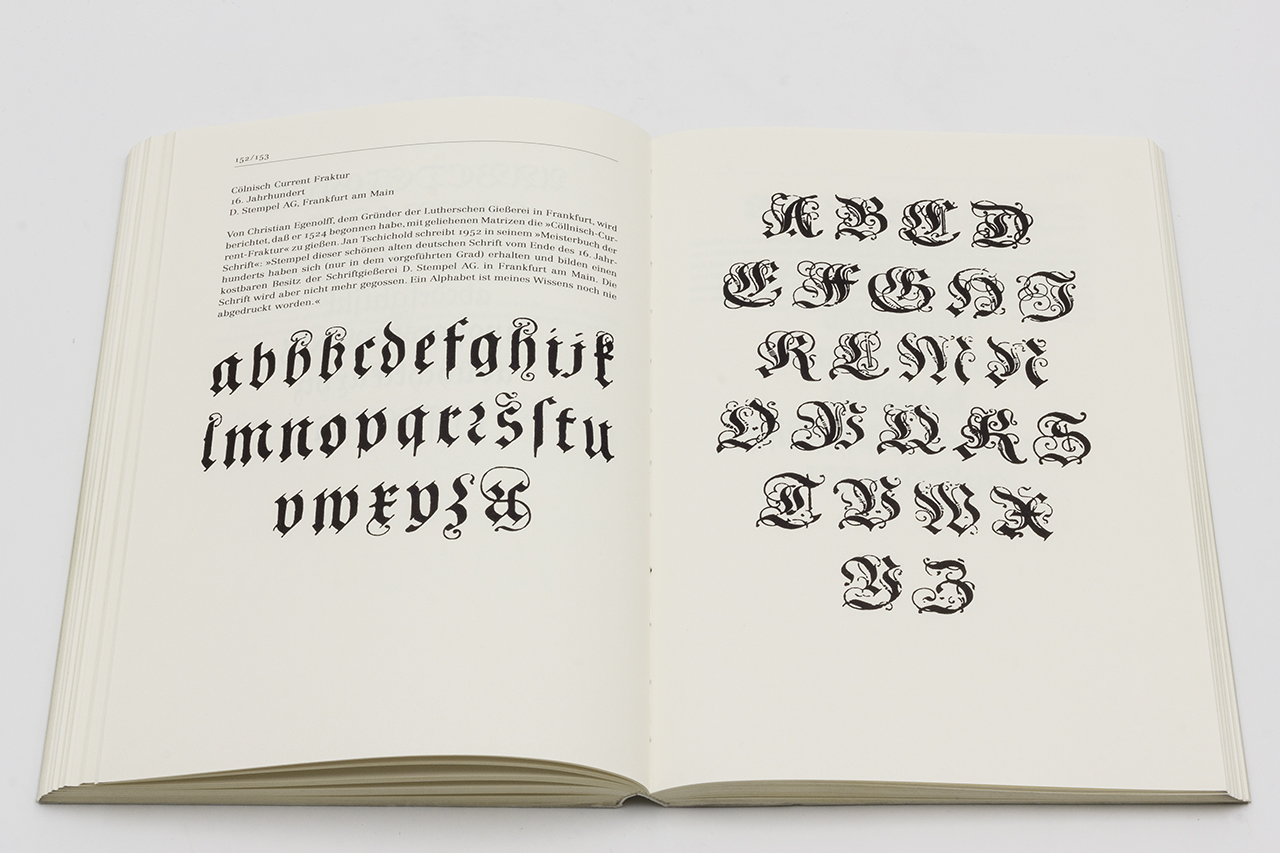 152/153
Cölnisch Current Fraktur
16. Jahrhundert
D. Stempel AG, Frankfurt am Main
Von Christian Egenolff, dem Gründer der Lutherschen Gießerei in Frankfurt, wird
berichtet, daß er 1524 begonnen habe, mit geliehenen Matrizen die »Cöllnisch-Cur-
rent-Fraktur« zu gießen. Jan Tschichold schreibt 1952 in seinem »Meisterbuch der
Schrift«: »Stempel dieser schönen alten deutschen Schrift vom Ende des 16. Jahr-
hunderts haben sich (nur in dem vorgeführten Grad) erhalten und bilden einen
kostbaren Besitz der Schriftgießerei D. Stempel AG. in Frankfurt am Main. Die
Schrift wird aber nicht mehr gegossen. Ein Alphabet ist meines Wissens noch nie
abgedruckt worden.«
a b b b b c d e f g h i j k
l m n o p q r ꝛ s ſ t u
v w x y z
A B C D
E F G H J
K L M N
O P Q R S
T V W X
Y Z